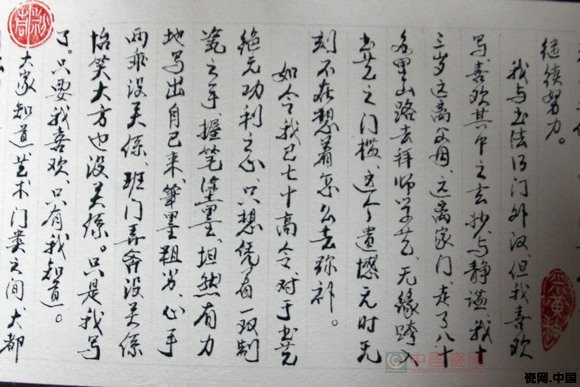 继续努力。
我与书法仍门外汉,但我喜欢
写喜欢其中之玄妙与静谧我十
三岁远离父母、远离家门,走了八十
多里山路去拜师学艺、无缘跨入
书艺之门槛,这个遗憾无时无
刻不在想着怎么去弥补。
如今我已七十高令,对于书艺
绝无功利之心,只想凭着一双制
瓷之手握笔塗墨,坦然有力
地写出自己来,笔墨粗劣、心手
两乖没关係,班门弄斧没关係
怡笑大方也没关係。只是我写
了。只要我喜欢,只有我知道。
大家知道艺术门类之间大都
中国瓷网
瓷网.中国